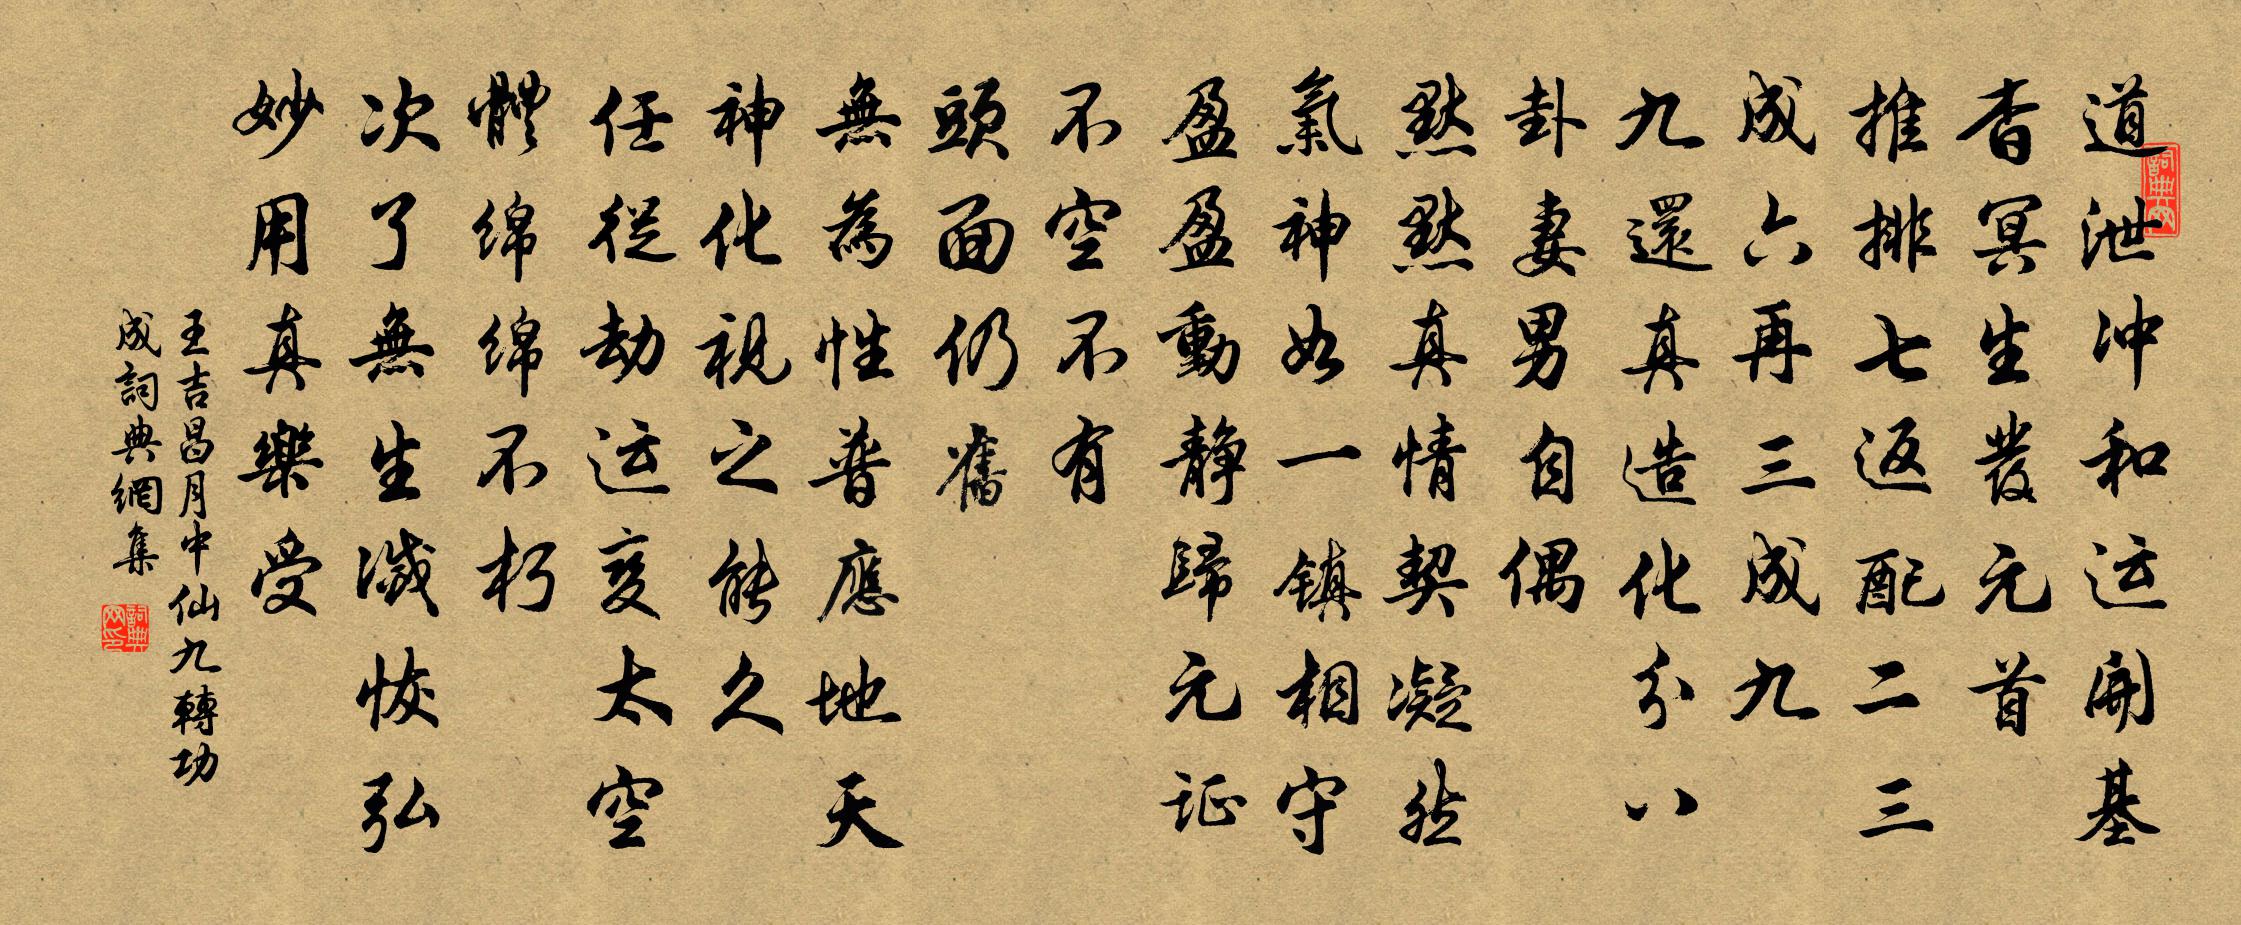 道泄冲和运開基
杳冥生發元首
推排七返配二三
成六再三成九
九還真造化分八
卦妻男自偶
默默真情契凝然
氣神如一鎮相守
盈盈動静歸元证
不空不有
頭面仍舊
無為性普應地天
神化視之能久
任從劫运变太空
體绵绵不朽
次了無生滅恢弘
妙用真樂受
王吉昌月中仙九轉功
成詞典網集
詞典网
詞典网印